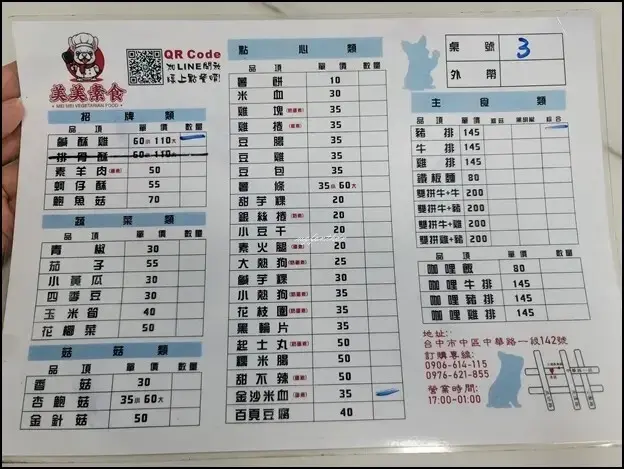 美美素食
MEI MEI VEGETARIAN FOOD
QR Code
LINE
招牌類
品項 單價 數量
鹹酥雞 60小 110大
排骨酥 60小 110大
素羊肉 50
蚵仔酥 55
鮑魚菇 70
蔬菜類
品項 單價 數量
青椒 30
茄子 55
小黃瓜 30
四季豆 30
玉米筍 40
花椰菜 50
菇菇類
品項 單價 數量
香菇 30
杏鮑菇 35小 60大
金針菇 50
點心類
品項 單價 數量
薯餅 10
米血 30
雞塊 35
雞捲 35
豆腸 35
豆雞 35
豆包 35
薯條 35小 60大
甜芋粿 20
銀絲捲 20
小豆干 20
素火腿 20
大熱狗 25
鹹芋粿 30
小熱狗 35
花枝圈 35
黑輪片 35
起士丸 50
糯米腸 50
甜不辣 50
金沙米血 35
百頁豆腐 40
桌號 3
外帶
主食類
品項 單價 蘑菇 黑胡椒 綜合
豬排 145
牛排 145
雞排 145
鐵板麵 80
雙拼牛+牛 200
雙拼牛+豬 200
雙拼牛+雞 200
雙拼雞+豬 200
品項 單價 數量
咖哩飯 80
咖哩牛排 145
咖哩豬排 145
咖哩雞排 145
地址:
台中市中區中華路一段142號
訂購專線:
0906-614-115
0976-621-855
營業時間:
17:00-01:00